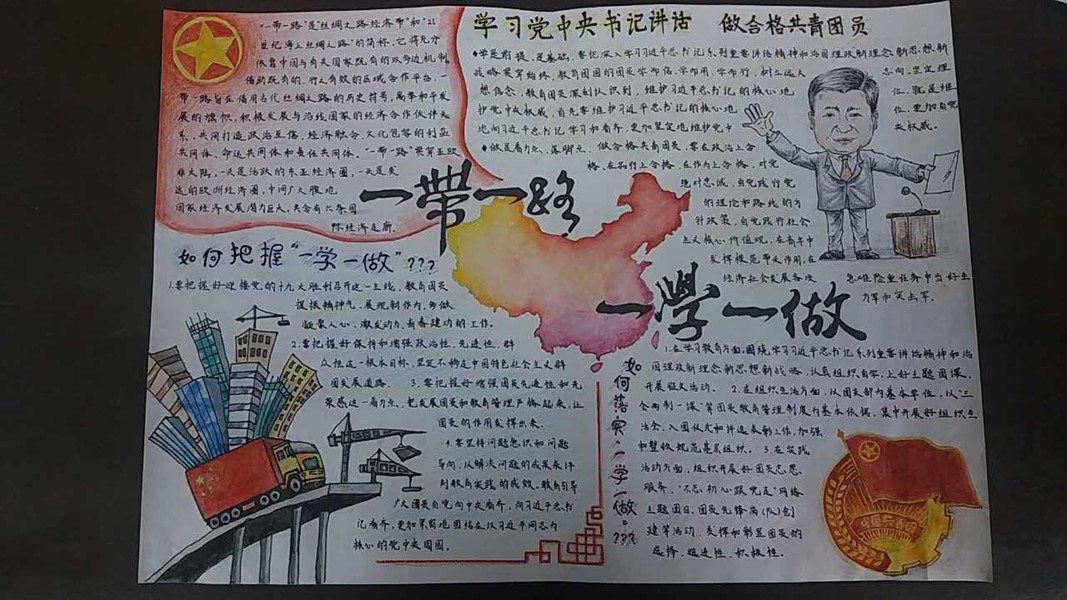 "一带一路"是"丝绸之路经济带"和"21
世纪海上丝绸之路"的简称,它将充分
依靠中国与有关国家既有的双多边机制,
借助既有的、行之有效的区域合作平台,一
带一路旨在借用古代丝绸之路的历史符号,高举和平发
展的旗帜,积极发展与沿线国家的经济合作伙伴关
系,共同打造政治互信、经济融合、文化包容的利益
共同体、命运共同体和责任共同体。"一带一路"贯穿亚欧
非大陆,一头是活跃的东亚经济圈,一头是发
达的欧洲经济圈,中间广大腹地
国家经济发展潜力巨大,共含有六条国
际经济走廊。
一带一路
学习党中央书记讲话 做合格共青团员
学是前提,是基础,要把深入学习习近平总书记系列重要讲话精神和治国理政新理念新思想新
战略贯穿始终,教育团员
志向,坚定理
想信念,教育团员深刻认识到,维护习近平总书记的核心地
位,就是维
护党中央权威,首先要维护习近平总书记的核心地
位,更加自觉
地向习近平总书记学习和看齐,更加坚定地维护党中
央权威。
做是着力点、落脚点,做合格共青团员,要在政治上合
格、在品行上合格、在作为上合格,对党
绝对忠诚,自觉践行党
的理论和路线的方
针政策,自觉践行社会
主义核心价值观,在青年中
发挥模范带头作用,在
经济社会发展各项
急难险重任务中当好生
力军和突击军。
如何把握"一学一做"???
1.要把握好迎接党的十九大胜利召开这一主线,教育团员
提振精神气,展现新作为,多做
凝聚人心、激发动力、奋春建功的工作。
2.要把握好保持和增强政治性、先进性、群
众性这一根本目标,坚定不移走中国特色社会主义群
团发展道路。 3.要把握好增强团员先进性和光
荣感这一着力点,把发展团员和教育管理严格起来,让
团员的作用发挥出来。
4.要坚持问题意识和问题
导向,从解决问题的成果来评
判教育实践的成效,教育引导
广大团员自觉向中央看齐,向习近平总书
记看齐,更加紧密地团结在以习近平同志为
核心的党中央周围。
一學一做
如何落实"一学一做"???
1.在学习教育方面,围绕学习习近平总书记系列重要讲话精神和治
国理政新理念新思想新战略,认真组织自学,上好主题团课,
开展征文活动。 2.在组织生活方面,以团支部为基本单位,以"三
会两制一课"等团员教育管理制度为基本依据,集中开展好组织生
活会、入团仪式和评选表彰工作,加强
和整顿规范基层组织。 3.在实践
活动方面,组织开展好团员志愿
服务、"不忘初心跟党走"网络
主题团日、团员先锋岗(队)创
建等活动,支撑和彰显团员的
先进性、积极性。
中国共青团